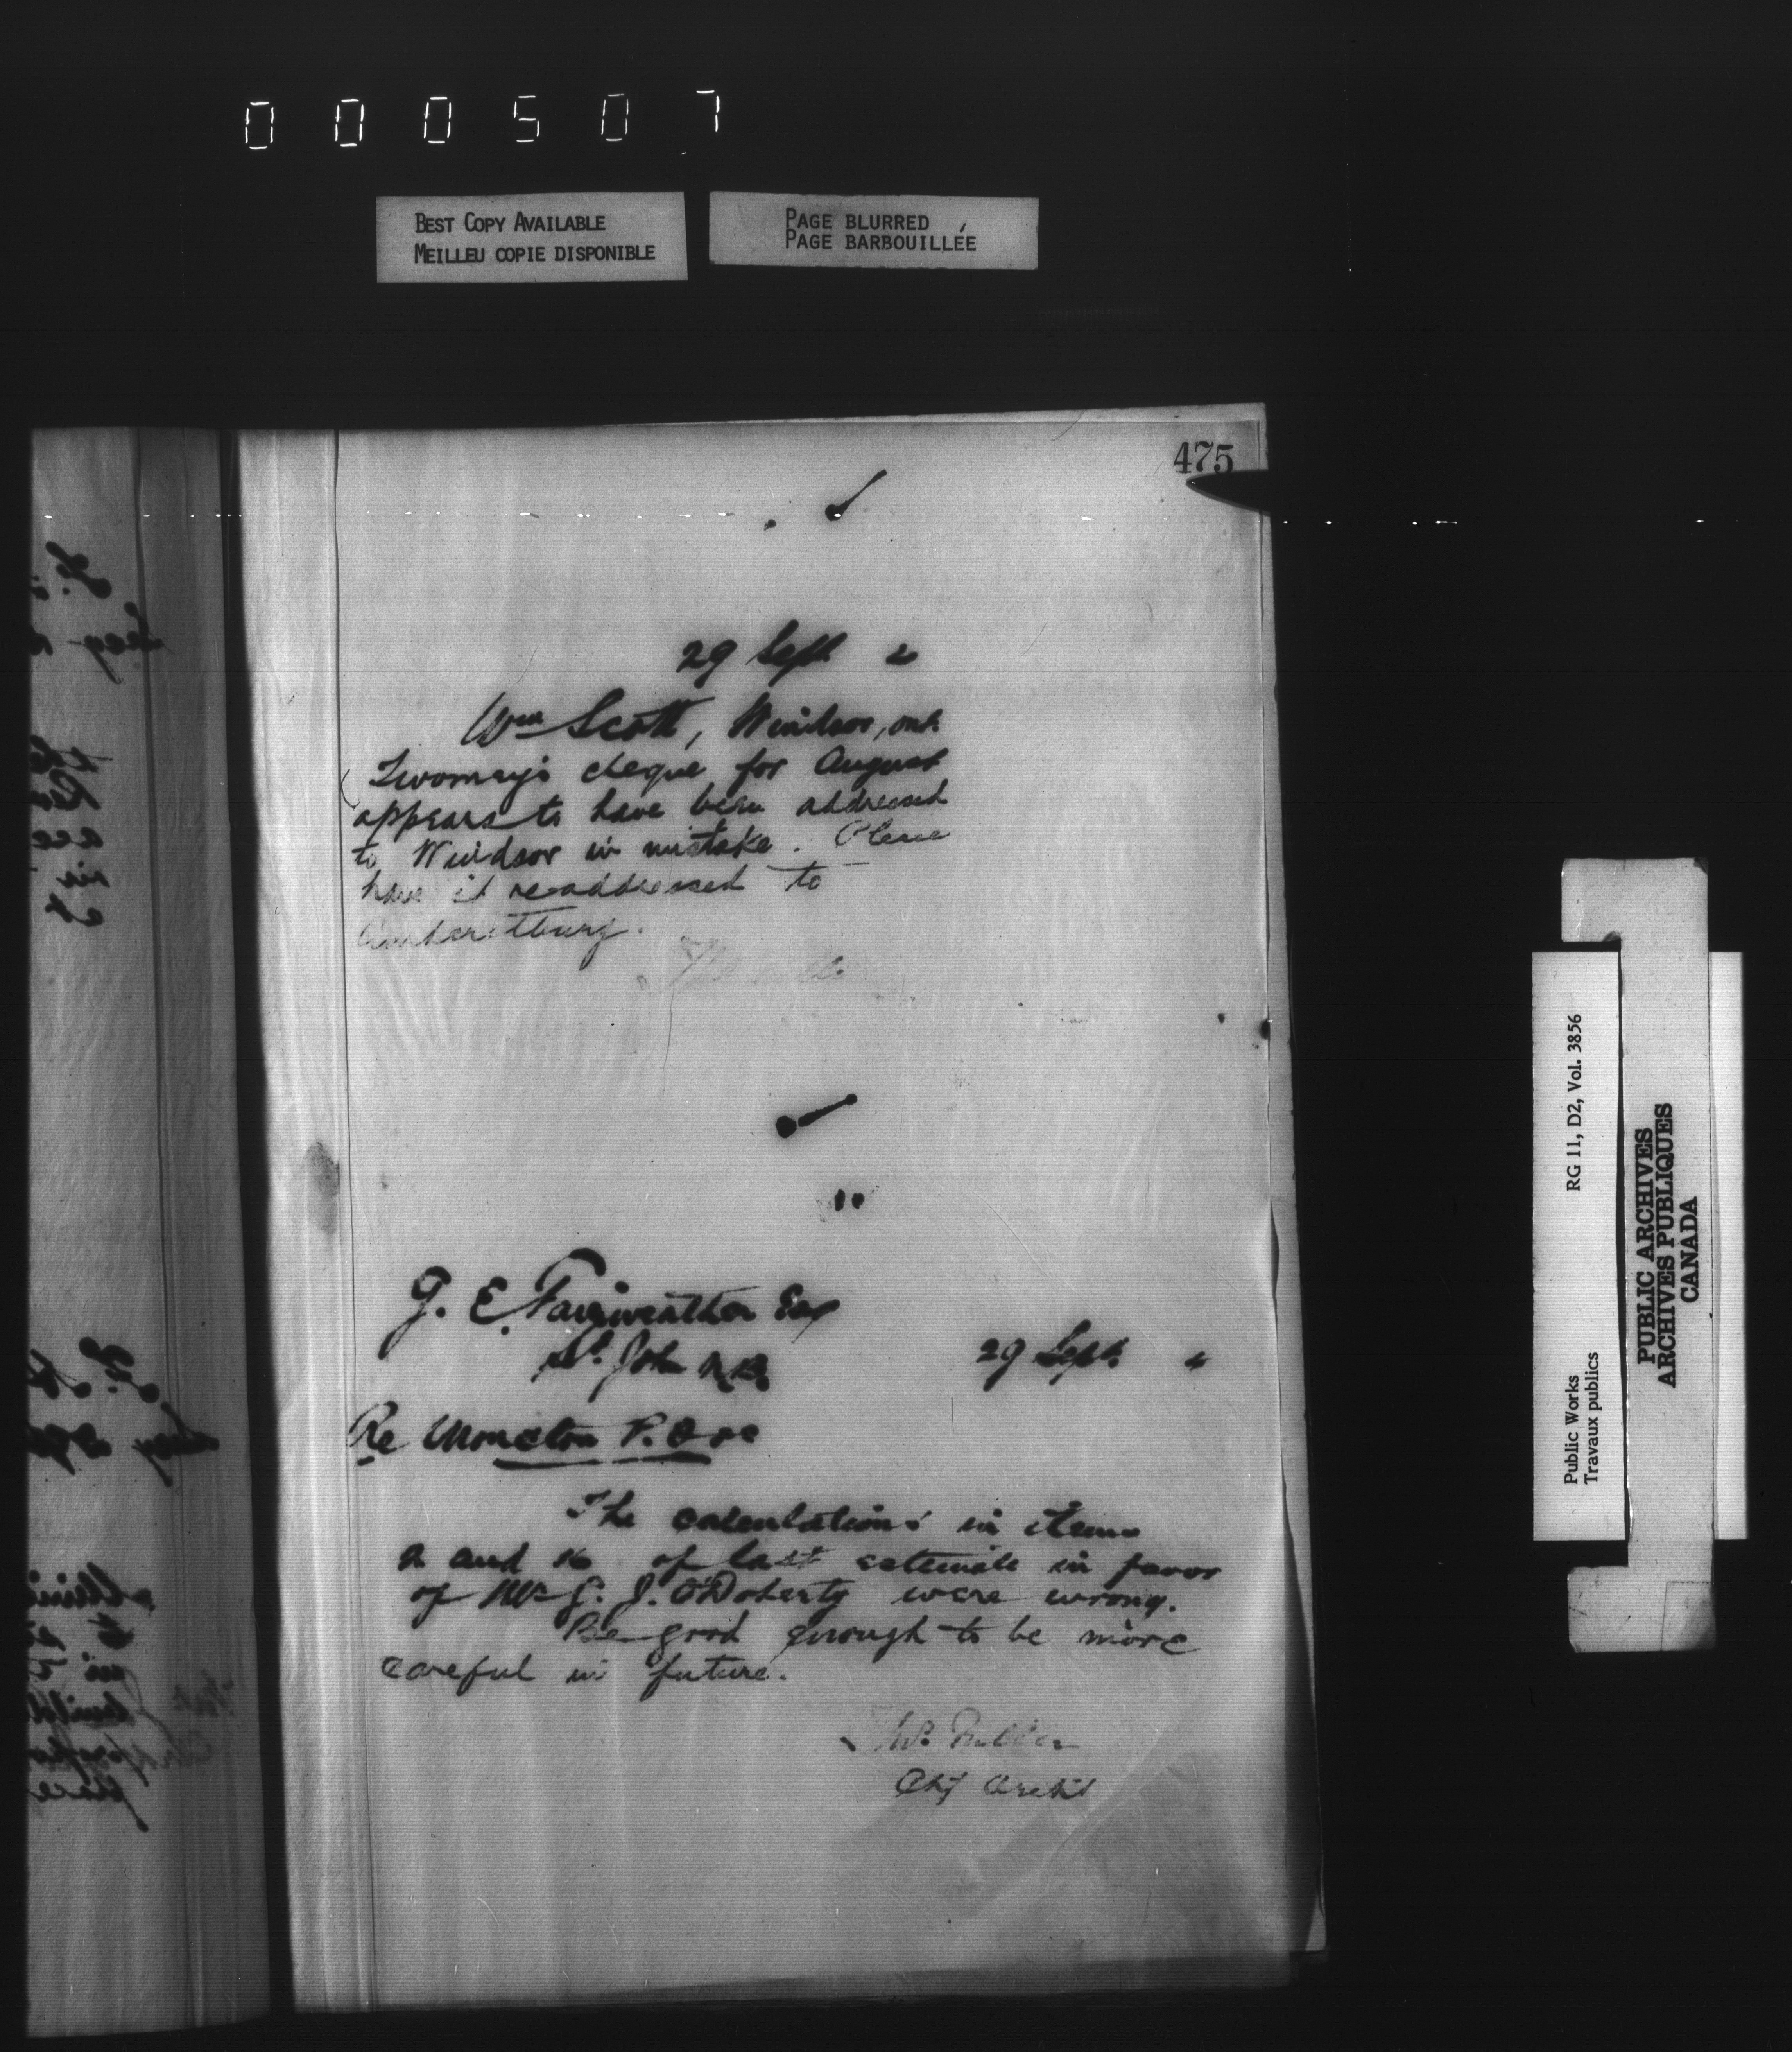 000507
BEST COPY AVAILABLE
MEILLEU COPIE DISPONIBLE
PAGE BLURRED
PAGE BARBOUILLÉE
475
29 Sept.
Wm Scott, Windsor, Ont.
Twomey's cheque for August
appears to have been addressed
to Windsor in mistake. Please
have it readdressed to
Amherstburg.
G. E. Fairweather Esq
St. John N.B.
29 Sept. "
Re Moncton P. O &c
The calculations in items
2 and 16 of last estimate in favor
of Mr G. J. O'Doherty were wrong.
Be good enough to be more
careful in future.
Thos. Fuller
Chf Archt
Public Works
Travaux publics
RG 11, D2, Vol. 3856
PUBLIC ARCHIVES
ARCHIVES PUBLIQUES
CANADA